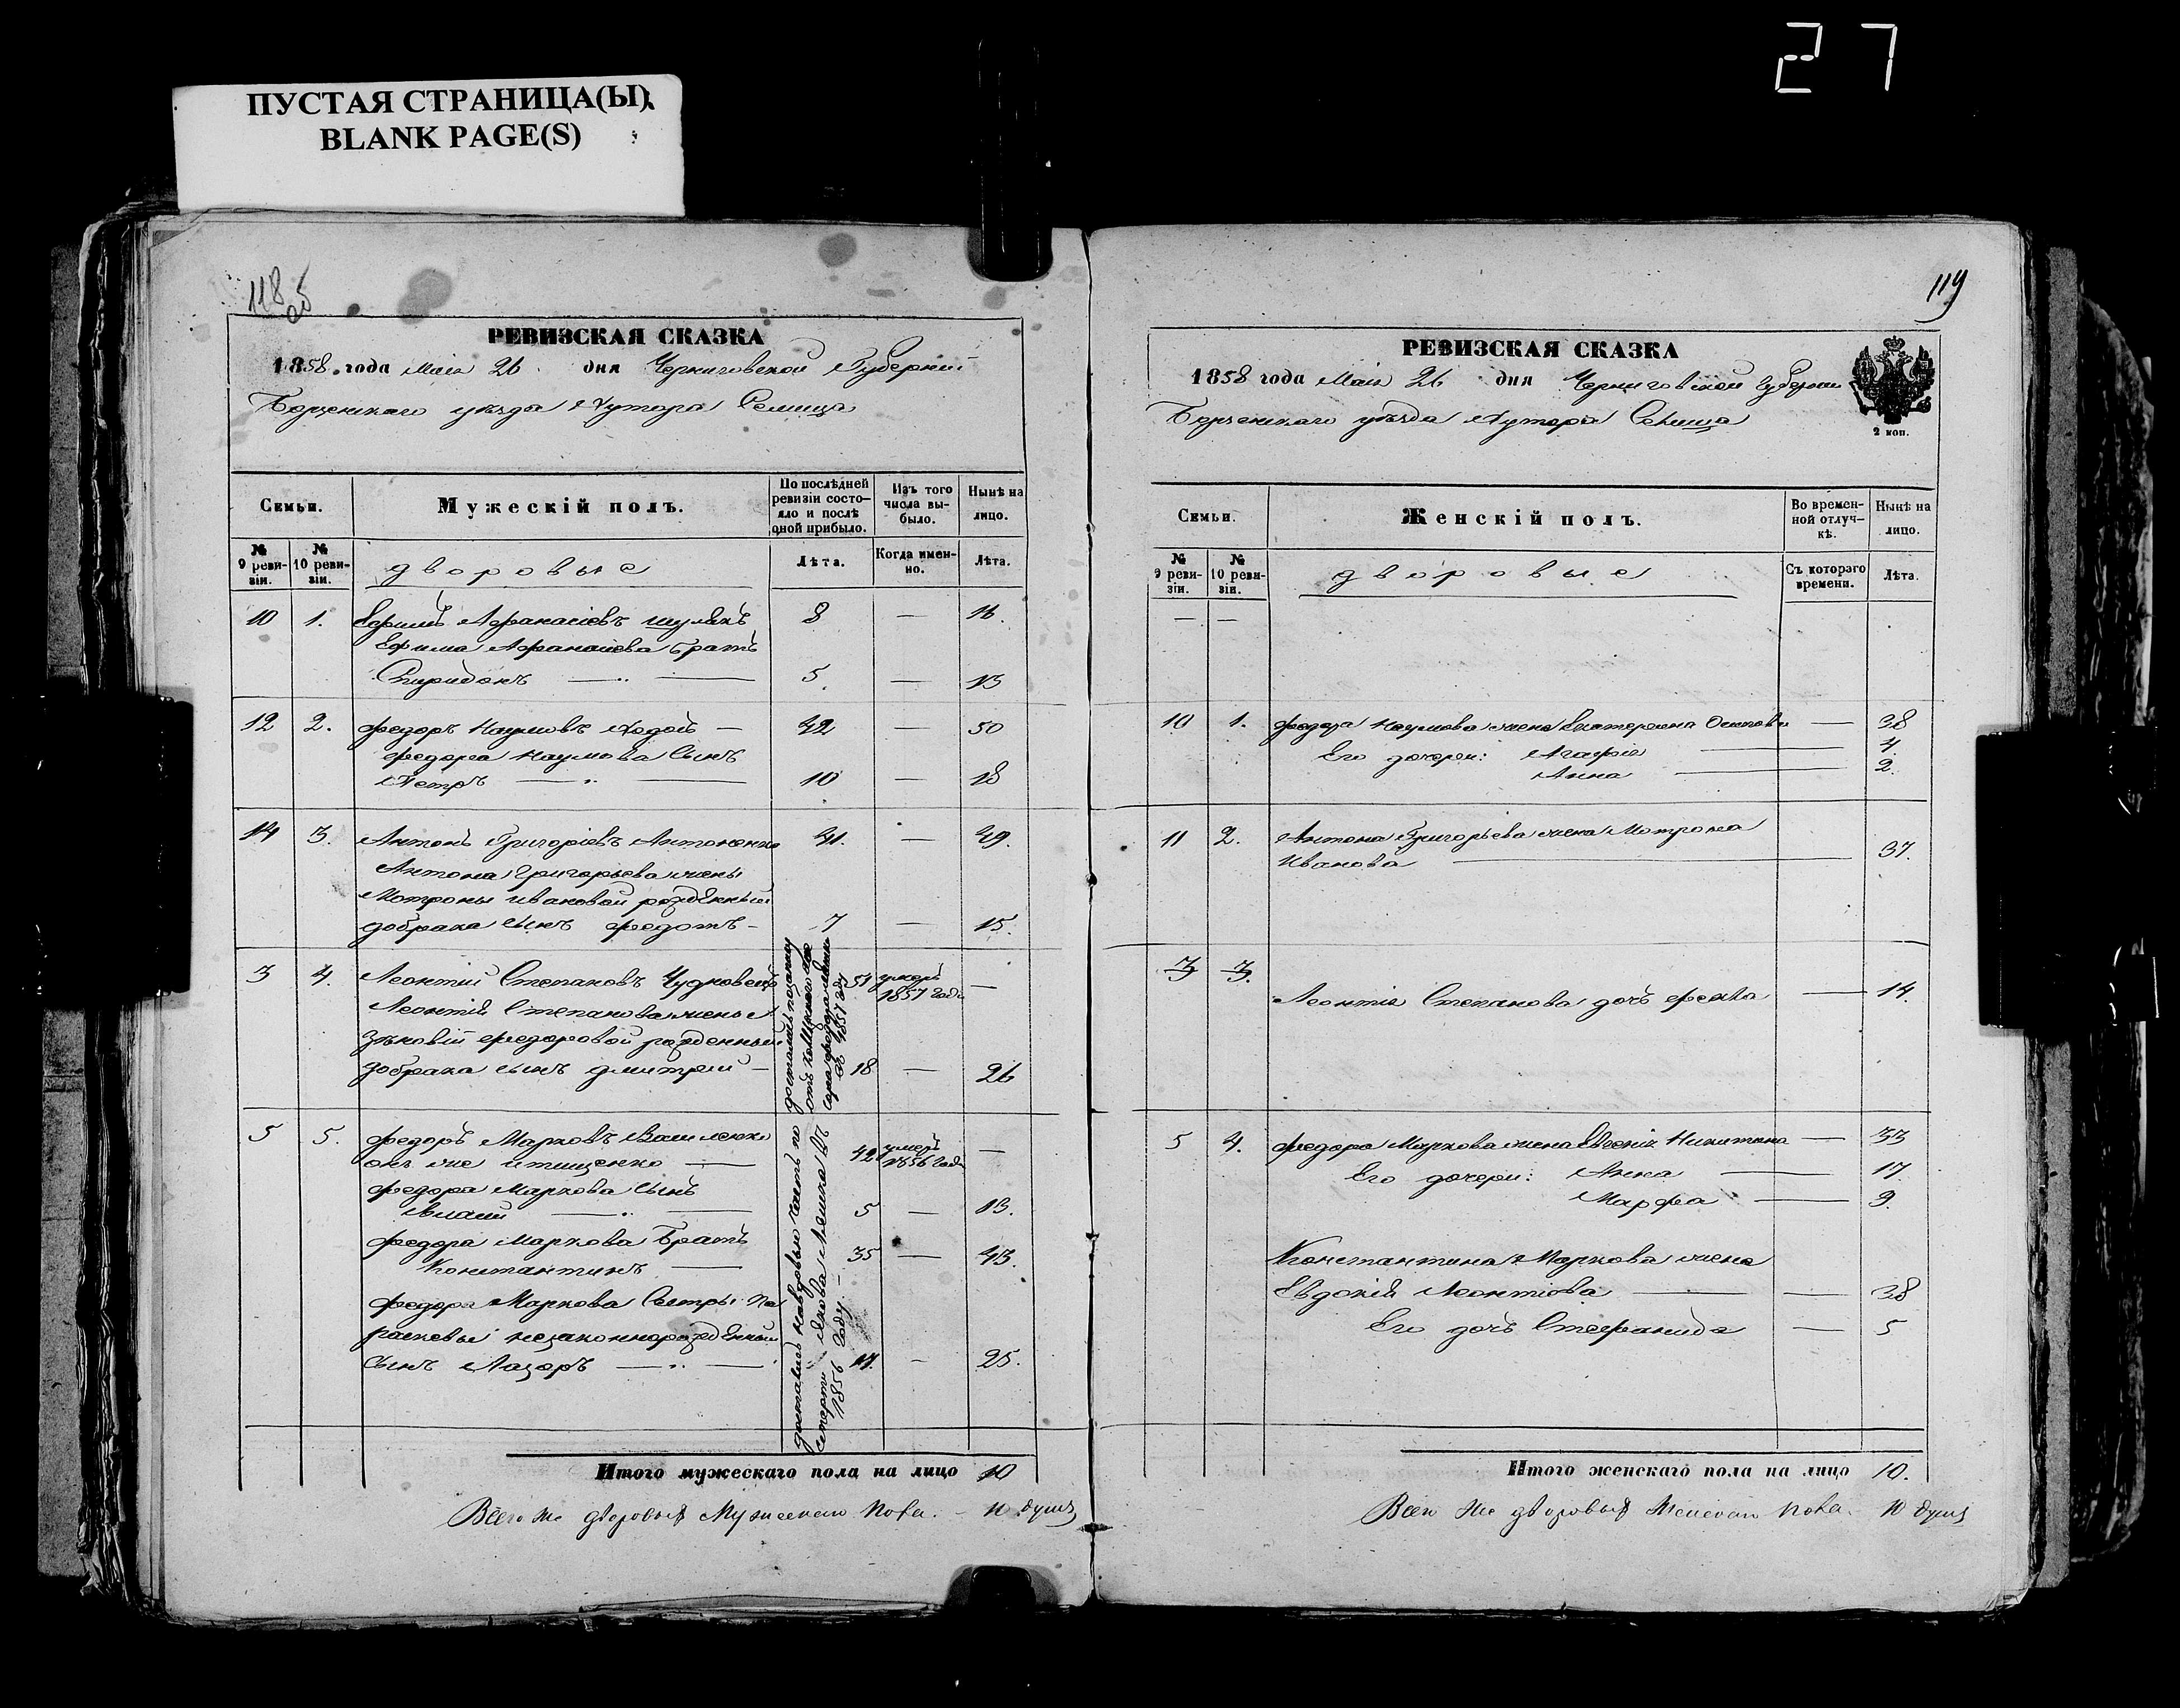 27
ПУСТАЯ СТРАНИЦА(Ы)
BLANK PAGE(S)
118 об
РЕВИЗСКАЯ СКАЗКА
1858 года Маія 26 дня Черниговской Губерніи
Борзенскаго уѣзда Хутора Селища
Семьи.
Мужескій полъ.
По послѣдней ревизіи состояло и послѣ оной прибыло.
Изъ того числа выбыло.
Нынѣ на лицо.
№ 9 ревизіи.
№ 10 ревизіи.
дворовые
Лѣта.
Когда именно.
Лѣта.
10 1. Ефимъ Афанасіевъ Шулякъ 8 — 16.
Ефима Афанасіева братъ
Спиридонъ — 5. — 13
12 2. Федоръ Наумовъ Ходой — 42 — 50
Федора Наумова Сынъ
Петръ — 10 — 18
14 3. Антонъ Григоріевъ Антоненко 41. — 49.
Антона Григорьева жены
Мотроны Ивановой рожденный
добрака сынъ Федотъ — 7 — 15.
3 4. Леонтій Степановъ Чудновецъ 51 умеръ 1857 года —
Леонтія Степанова жены
Зѣновіи Федоровой рожденный
добрака сынъ Дмитрій — 18 — 26
въ 1857 году
5 5. Федоръ Марковъ Василенко 42 умеръ 1856 года —
онъ же Итищенко —
Федора Маркова Сынъ
Власій — 5 — 13.
Федора Маркова Братъ
Константинъ — 35 — 43.
Федора Маркова Сестры Па
расковьи незаконнорожденный
сынъ Лазарь — 17. — 25.
достались наслѣдовью часть по
смерти Якова Лешка въ
1856 году
Итого мужескаго пола на лицо 10
Всего же дворовыхъ Мужескаго пола. — 10 душъ
119
РЕВИЗСКАЯ СКАЗКА
1858 года Маія 26 дня Черниговской Губерніи
Борзенскаго уѣзда Хутора Селища
2 коп.
Семьи.
Женскій полъ.
Во временной отлучкѣ.
Нынѣ на лицо.
№ 9 ревизіи.
№ 10 ревизіи.
дворовые
Съ котораго времени.
Лѣта.
— —
10 1. Федора Наумова жена Екатерина Осипова — 38
Его дочери: Агафія — 4.
Анна — 2.
11 2. Антона Григорьева жена Мотрона
Иванова — 37.
3 3. Леонтія Степанова дочь Фекла — 14.
5 4. Федора Маркова жена Евгенія Никитина — 33
Его дочери: Анна — 17.
Марфа — 9.
Константина Маркова жена
Евдокія Леонтіова — 38
Его дочь Стефанида — 5
Итого женскаго пола на лицо 10.
Всего же дворовыхъ Женскаго пола. 10 душъ